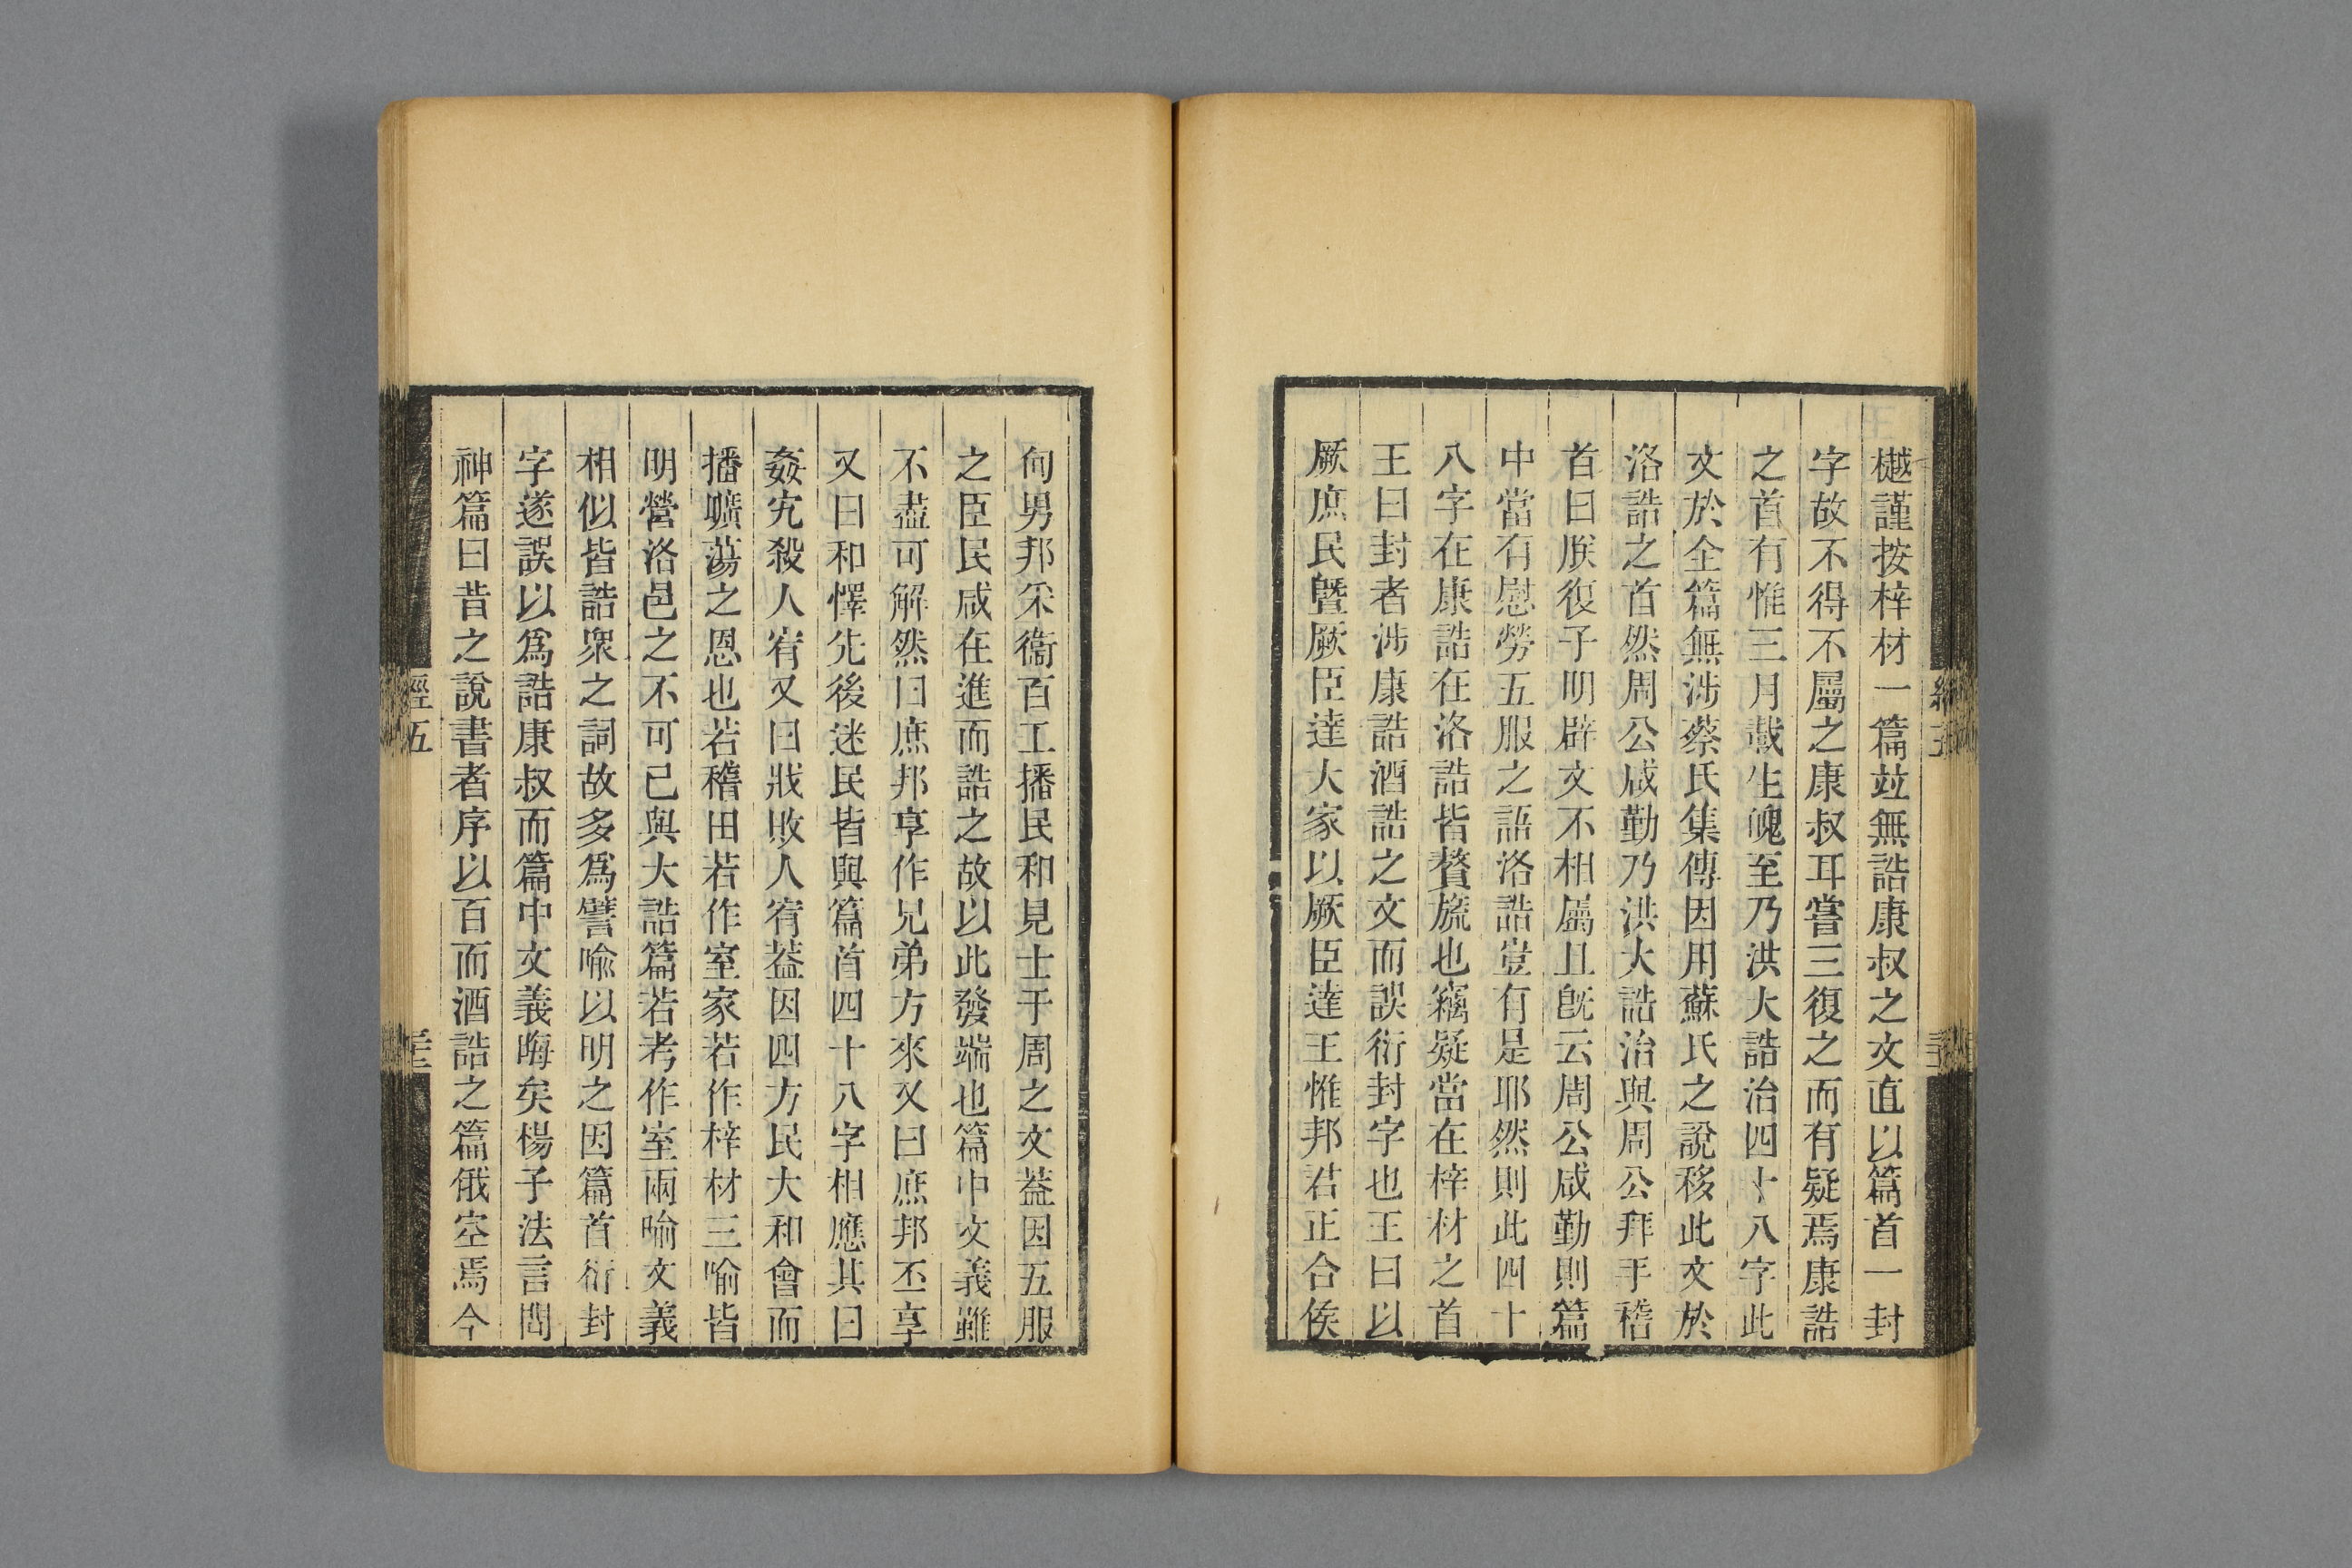 樾謹按梓材一篇竝無誥康叔之文直以篇首一封
字故不得不屬之康叔耳嘗三復之而有疑焉康誥
之首有惟三月哉生魄至乃洪大誥治四十八字此
文於全篇無涉蔡氏集傳因用蘇氏之說移此文於
洛誥之首然周公咸勤乃洪大誥治與周公拜手稽
首曰朕復子明辟文不相屬且旣云周公咸勤則篇
中當有慰勞五服之語洛誥豈有是耶然則此四十
八字在康誥在洛誥皆贅旒也竊疑當在梓材之首
王曰封者涉康誥酒誥之文而誤衍封字也王曰以
厥庶民暨厥臣達大家以厥臣達王惟邦君正合侯
甸男邦采衞百工播民和見士于周之文葢因五服
之臣民咸在進而誥之故以此發端也篇中文義雖
不盡可解然曰庶邦享作兄弟方來又曰庶邦丕享
又曰和懌先後迷民皆與篇首四十八字相應其曰
姦宄殺人宥又曰戕敗人宥葢因四方民大和會而
播曠蕩之恩也若稽田若作室家若作梓材三喻皆
明營洛邑之不可已與大誥篇若考作室兩喻文義
相似皆誥衆之詞故多爲譬喻以明之因篇首衍封
字遂誤以爲誥康叔而篇中文義晦矣楊子法言問
神篇曰昔之說書者序以百而酒誥之篇俄空焉今
經五